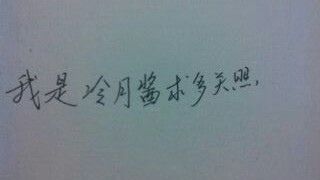 我是冷月酱求多关照.